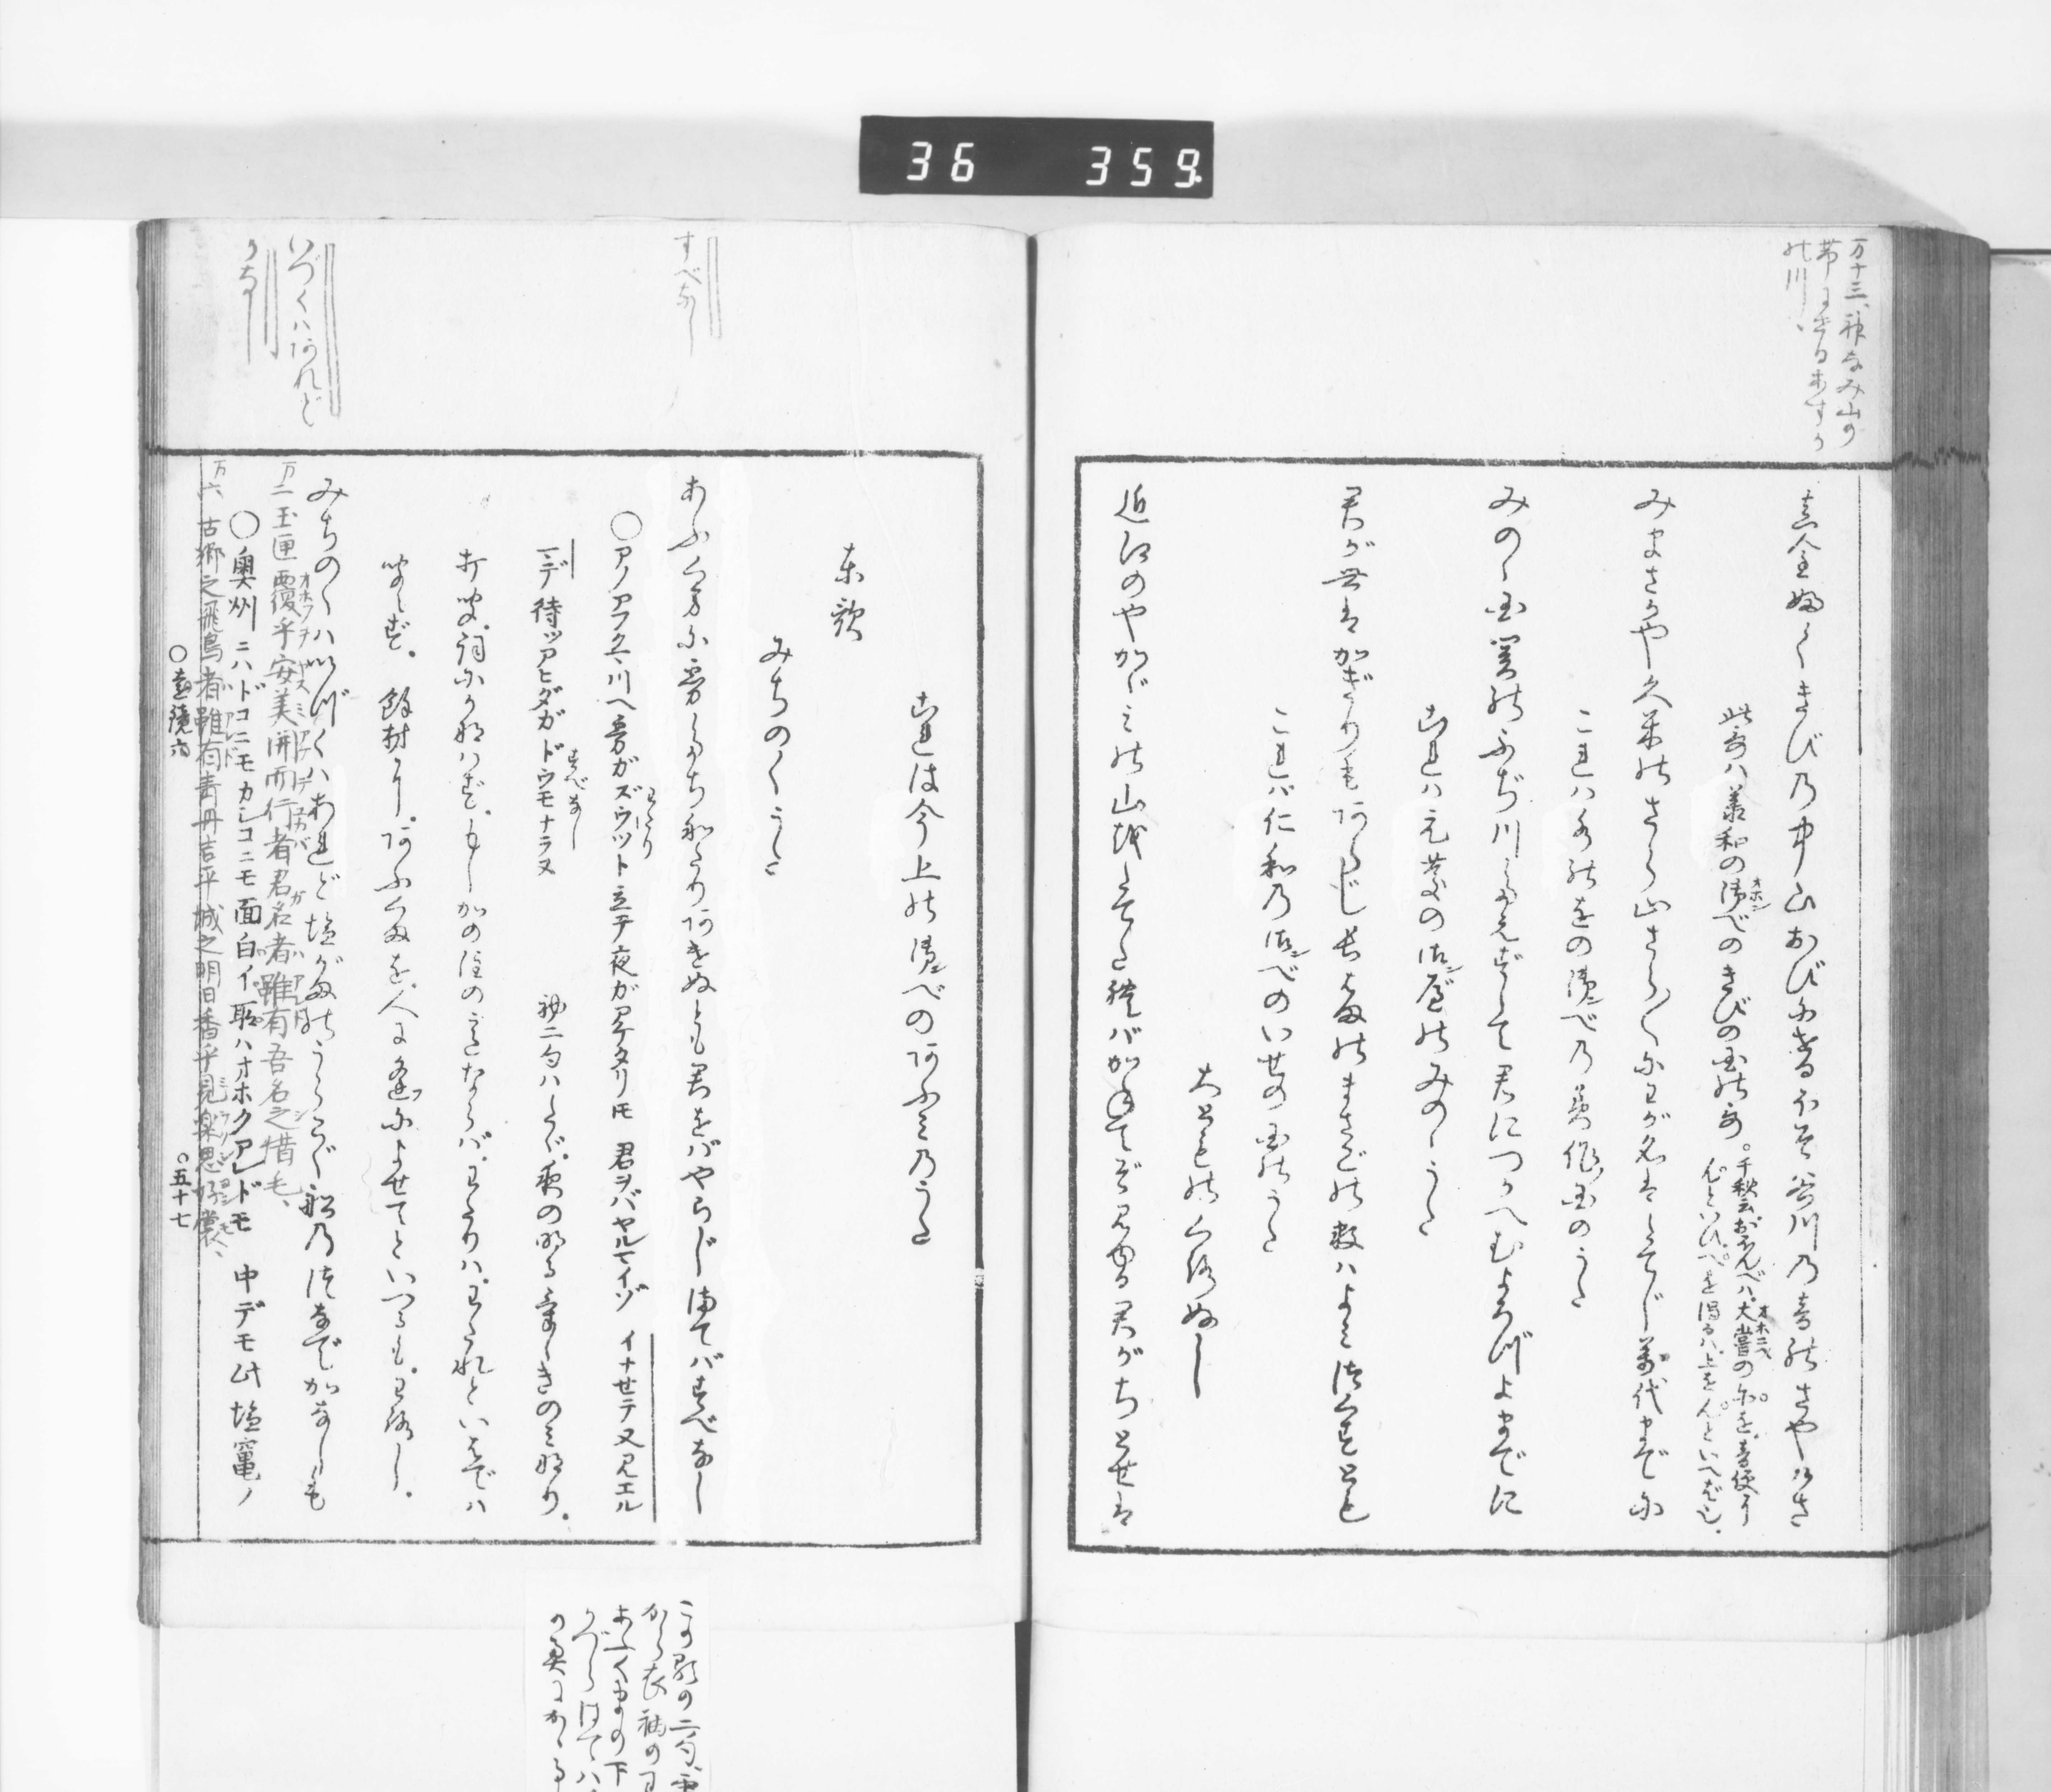 36 359
万十三、神なみ山の
帯にせるあすか
の川、
真金ふくきびの中山おびにせるほそ谷川の音のさやけさ
此哥ハ承和の御べのきびの国の哥。
千秋云おほんべハ、大嘗のにを、音便に
んといひ、べを濁るハ、上をんといへば也、
みまさかや久米のさら山さら〳〵にわが名はたてじ万代までに
これハ水のをの御べの美作国のうた
みのゝ国関のふぢ川たえずして君につかへむよろづよまでに
これハ元慶の御べのみのゝうた
君が世はかぎりもあらじ長はまのまさごの数ハよみつくすとも
これバ仁和の御べのいせの国のうた
大とものくろぬし
近江のやかゞみの山をたてたればかねてぞ見ゆる君がちとせは
これは今上の御べのあふみのうた
東歌
みちのくうた
すべなし
あふくまに霧たちわたりあけぬとも君をばやらじまてバすべなし
○アノアフクマ川ヘ霧ガズウツト立テ夜ガアケタリトモ 君ヲバヤルマイゾ イナセテ又見エル
マデ待ツアヒダガドウモナラヌ
わたり
すべなし
初二句ハたゞ、夜の明るけしきのミなり。
打聞、詞にかなハず、もしかの注の意ならバ、わたりハ、わたれといはでハ
聞えず。餘材に、あふくまを、人に逢によせてといへるも、わろし。
いづくハあれど
かなし
みちのくハいづくハあれど塩がまのうらこぐ舟のつなでかなしも
万二玉匣覆乎安美開而行者君名者雖有吾名之惜毛、
○奥州ニハドコニモカシコニモ面白イ所ハオホクアレドモ 中デモ此塩竈ノ
万六 古郷之飛鳥者雖有青丹吉平城之明日香乎見楽思好裳、
○遠鏡六
○五十七
この歌の二句、
から衣袖の
あふくまの下